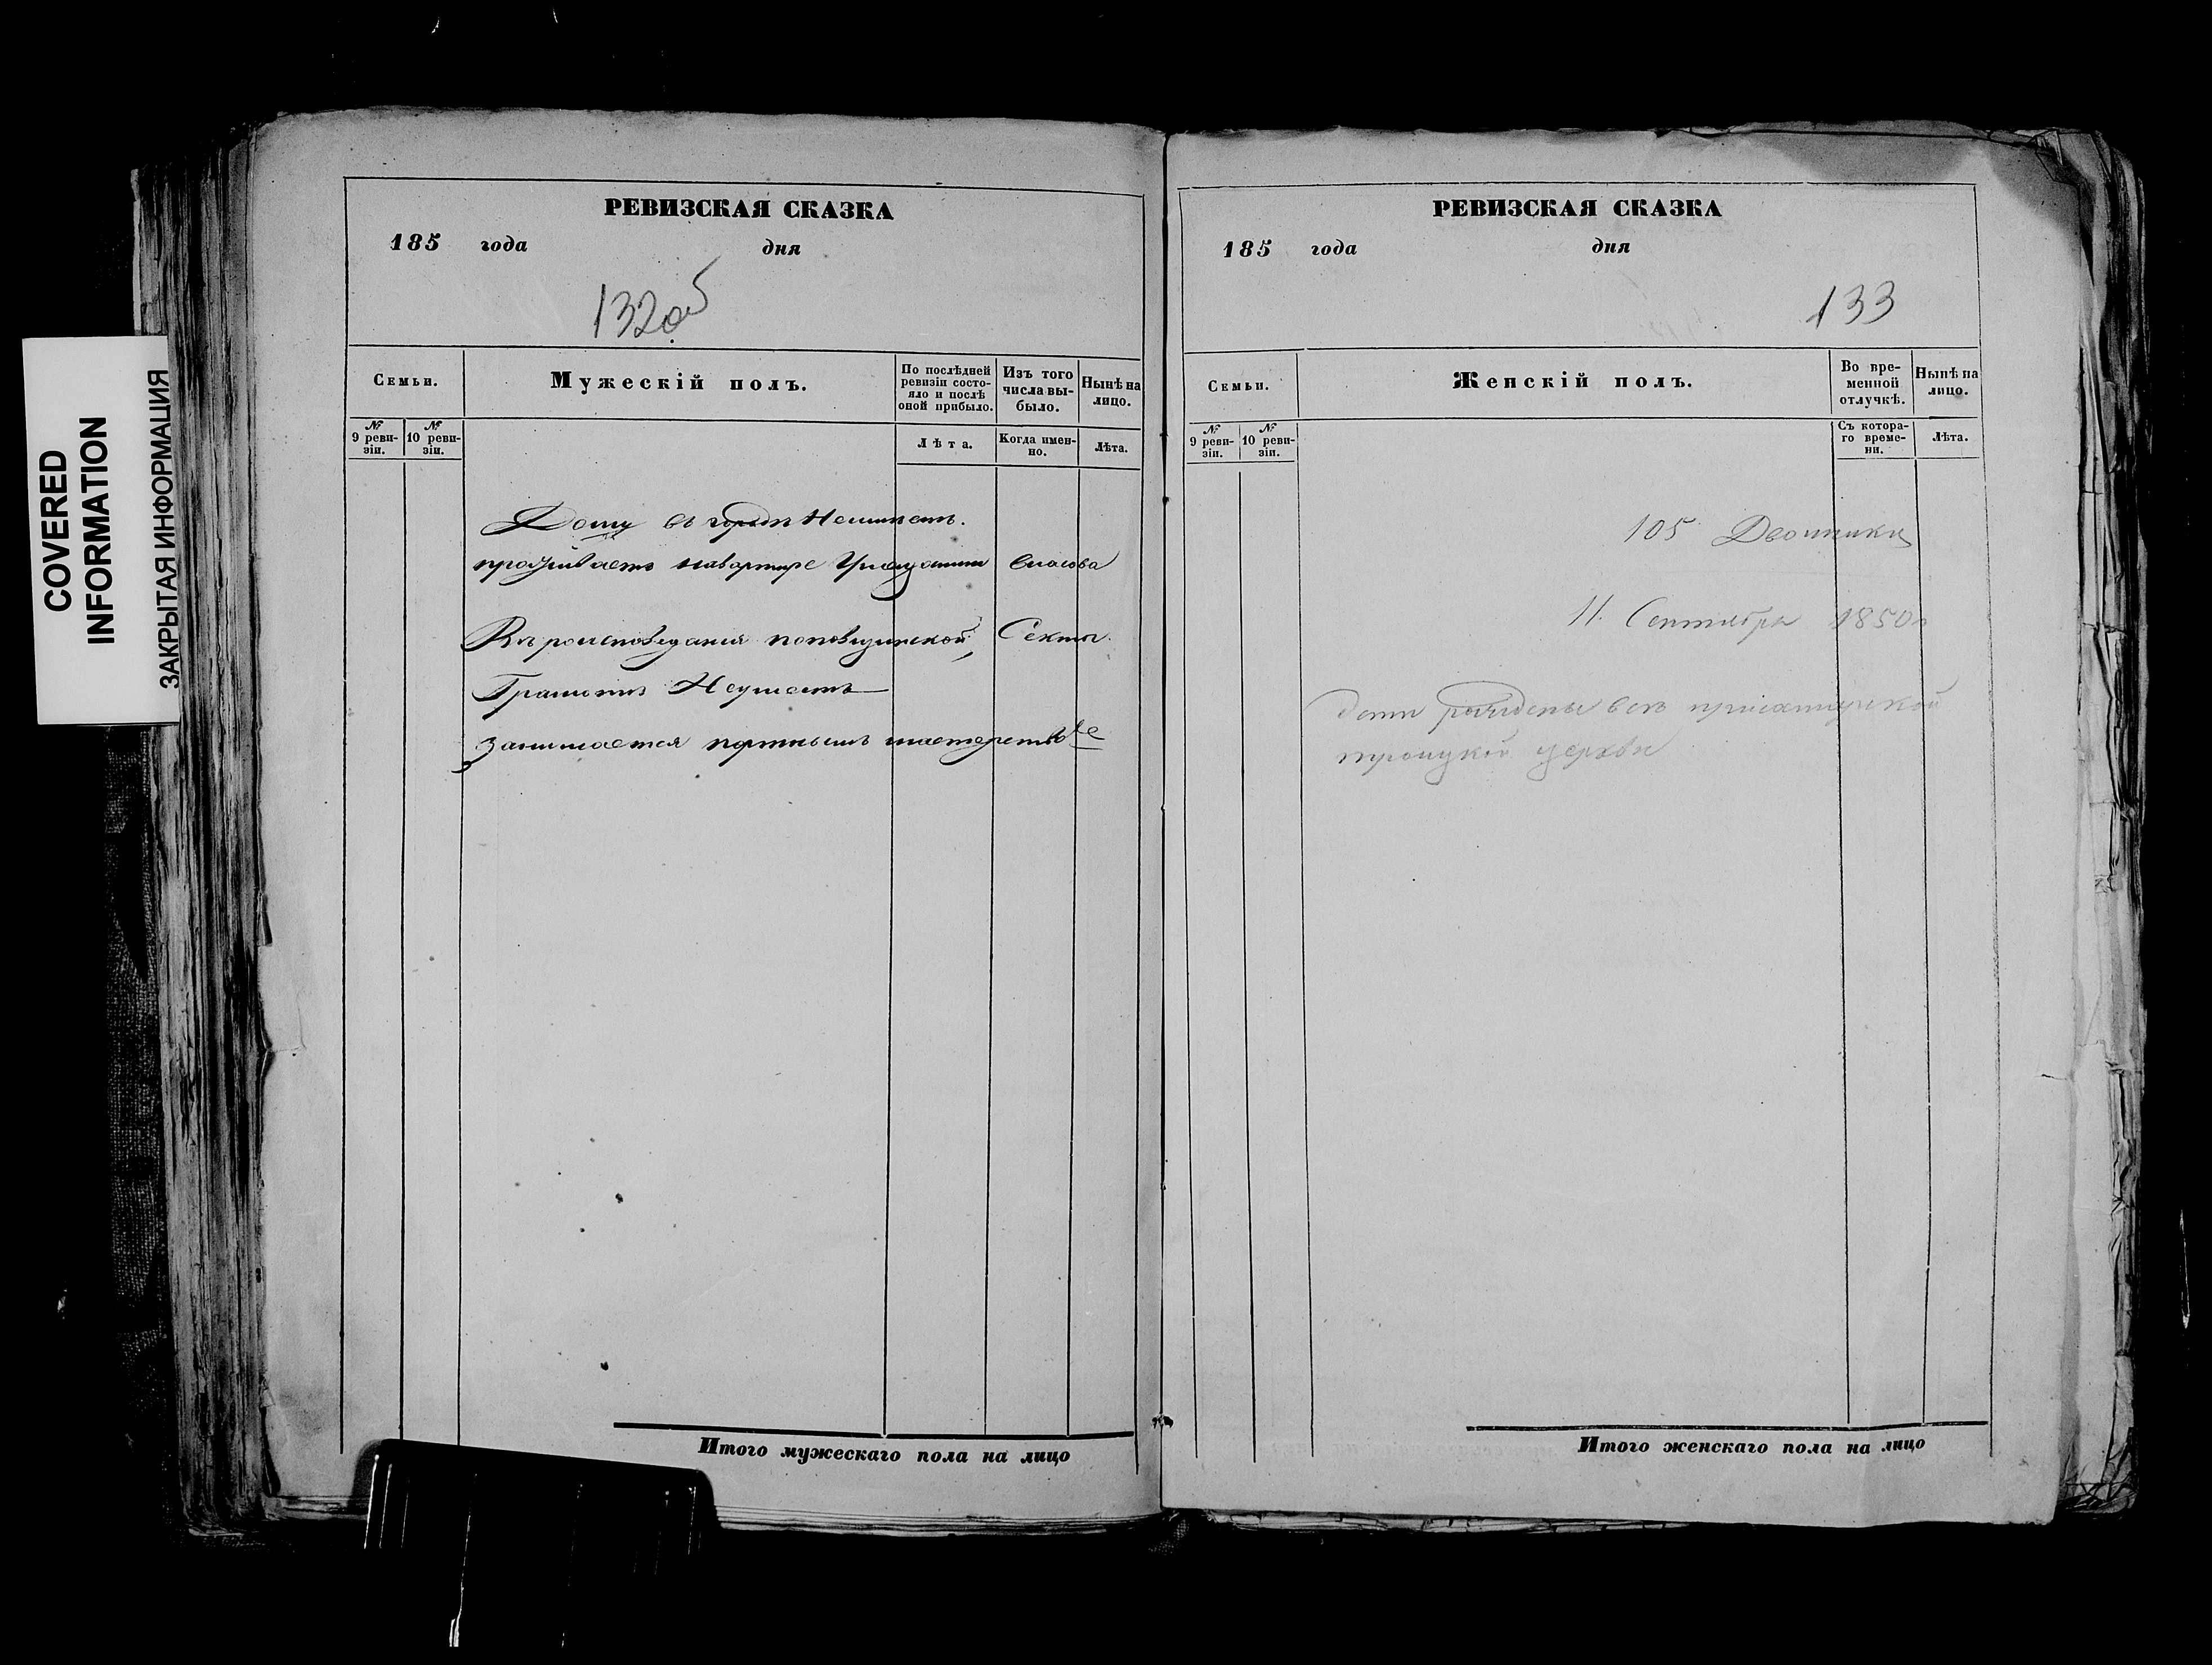 COVERED
INFORMATION
ЗАКРЫТАЯ ИНФОРМАЦИЯ
РЕВИЗСКАЯ СКАЗКА
185 года дня
132об
Семьи.
Мужескій полъ.
По послѣдней ревизіи состояло и послѣ оной прибыло.
Изъ того числа выбыло.
Нынѣ на лицо.
№ 9 ревизіи.
№ 10 ревизіи.
Лѣта.
Когда именно.
Лѣта.
Дому въ городѣ Неимѣетъ.
проживаетъ наквартире
Вѣроисповеданія поповщинской Секты.
Грамотѣ Неумѣетъ
Занимается портнымъ мастерством
Итого мужескаго пола на лицо
РЕВИЗСКАЯ СКАЗКА
185 года дня
133
Семьи.
Женскій полъ.
Во временной отлучкѣ.
Нынѣ на лицо.
№ 9 ревизіи.
№ 10 ревизіи.
Съ котораго времени.
Лѣта.
105 Двойники
11 Сентября 1850
дети рождены все
троицкой церкви
Итого женскаго пола на лицо